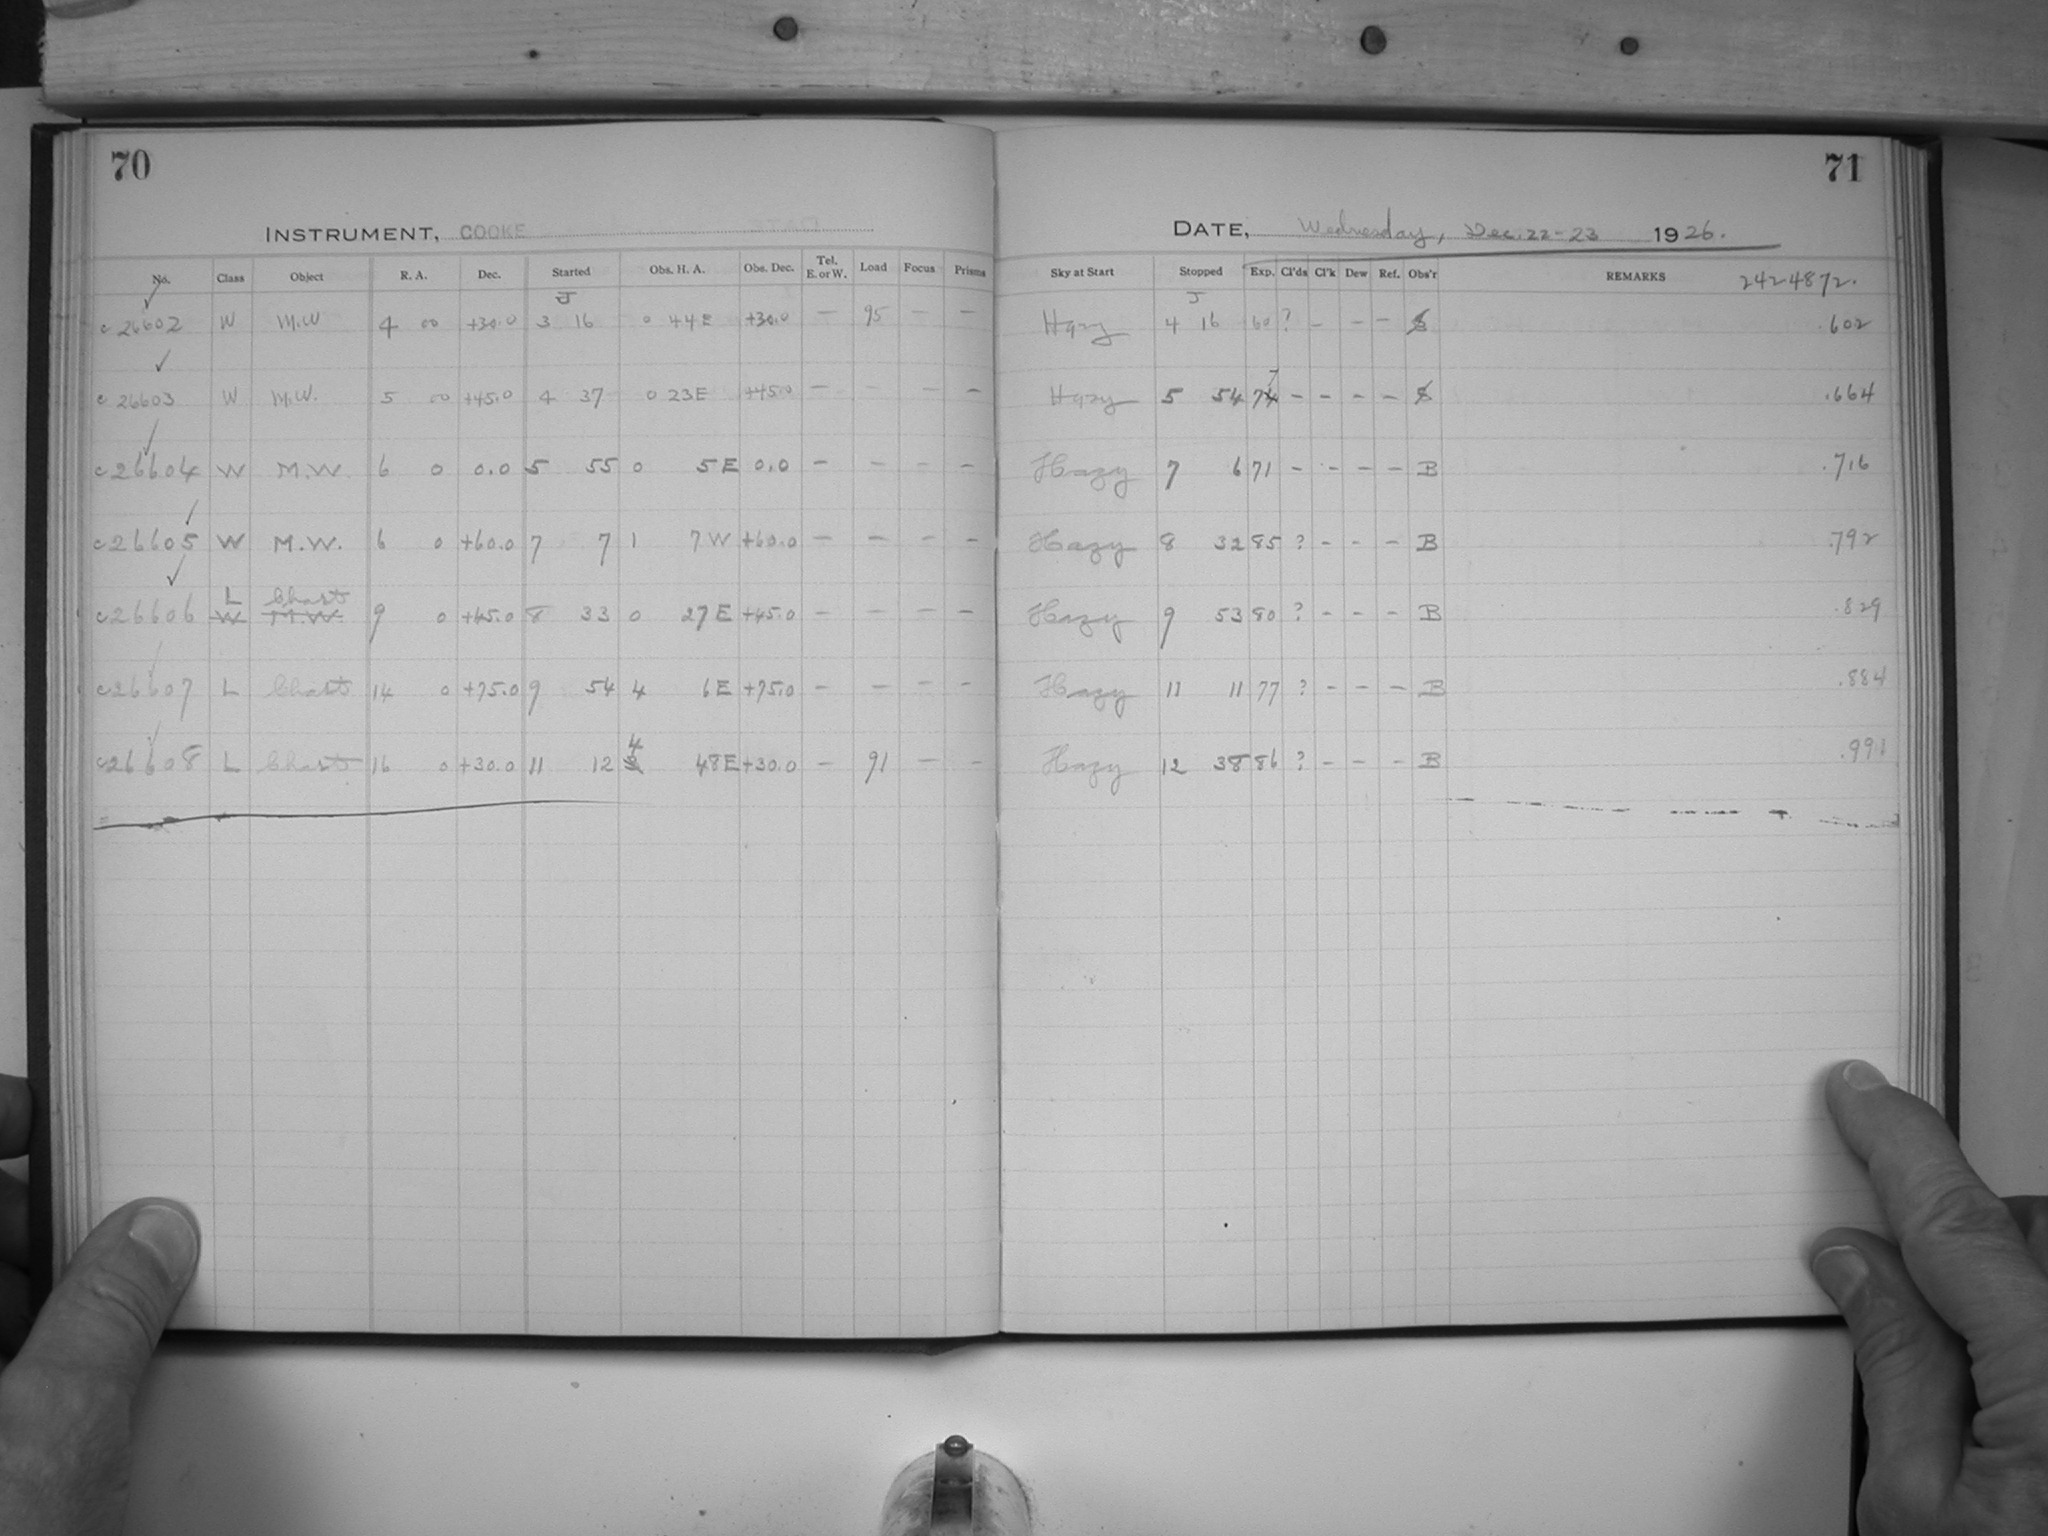 70
INSTRUMENT, COOKE
No. Class Object R. A. Dec. Started Obs. H. A. Obs. Dec. Tel. E. or W. Load Focus Prisms
J
c 26602 W M.W 4 00 +30.0 3 16 0 44E +30.0 — 95 — —
c 26603 W M.W. 5 00 +45.0 4 37 0 23E +45.0 — — — —
c 26604 W M.W. 6 0 0.0 5 55 0 5E 0.0 — — — —
c 26605 W M.W. 6 0 +60.0 7 7 1 7W +60.0 — — — —
L Chart
c 26606 W M.W. 9 0 +45.0 8 33 0 27E +45.0 — — — —
c 26607 L Chart 14 0 +75.0 9 54 4 6E +75.0 — — — —
4
c 26608 L Chart 16 0 +30.0 11 12 48E +30.0 — 91 — —
71
DATE, Wednesday, Dec. 22-23 1926.
Sky at Start Stopped Exp. Cl'ds Cl'k Dew Ref. Obs'r REMARKS 2424872.
J
Hazy 4 16 60 ? — — — .602
7
Hazy 5 54 74 — — — — .664
Hazy 7 6 71 — — — — B .716
Hazy 8 32 85 ? — — — B .792
Hazy 9 53 80 ? — — — B .829
Hazy 11 11 77 ? — — — B .884
Hazy 12 38 86 ? — — — B .991